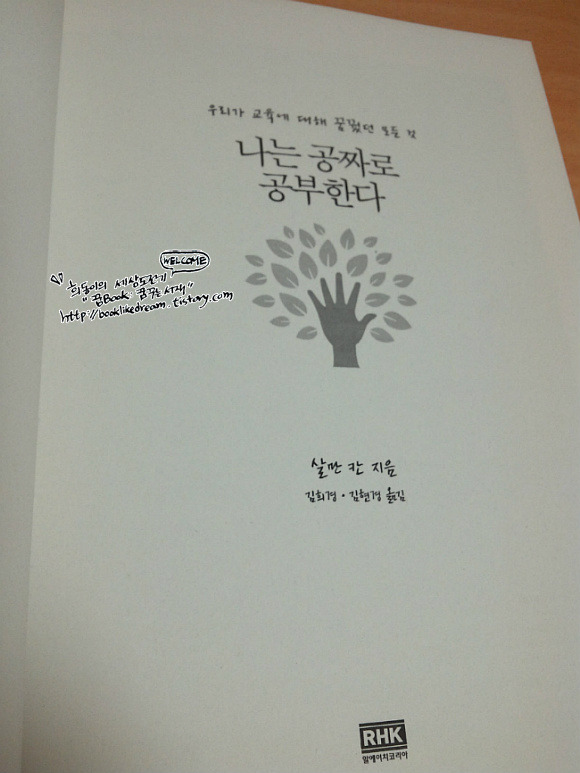 우리가 교육에 대해 꿈꿨던 모든 것
나는 공짜로
공부한다
WELCOME
희동이의 세상도전기
"꿈Book 꿈꾸는 서재"
http://booklikedream.tistory.com
살만 칸 지음
김희경·김현경 옮김
RHK
알에이치코리아